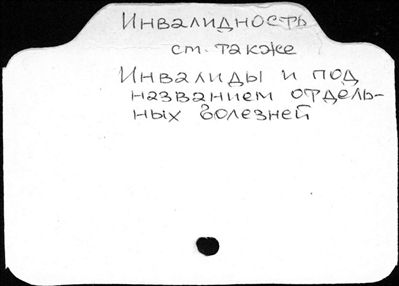 Инвалидность
см. также
Инвалиды и под
названием отдель-
ных болезней